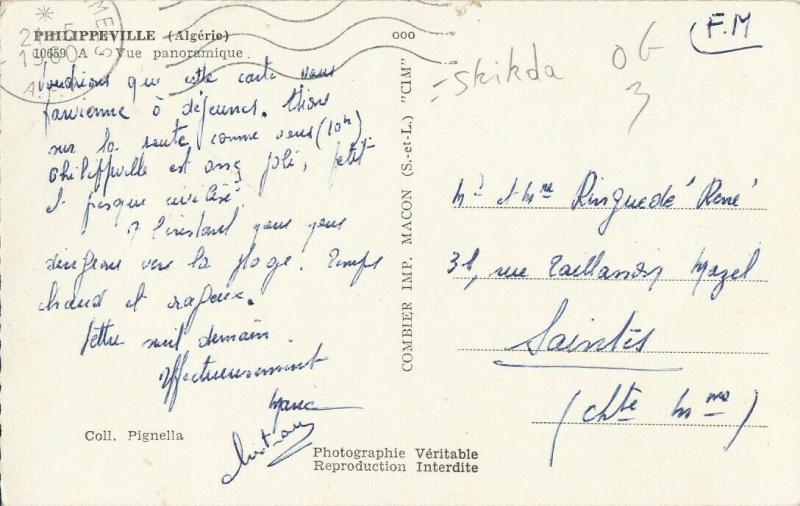 PHILIPPEVILLE (Algérie)
10659 A Vue panoramique
1960
voudrions que cette carte vous
parvienne à déjeuner. Étions
sur la route comme vous (10h)
Philippville est assez joli, petit
et presque civilisé.
A l'instant nous nous
dirigeons vers la plage. Temps
chaud et orageux.
Lettre suit demain.
Affectueusement
Marie
Christian
Coll. Pignella
ooo
COMBIER IMP. MACON (S.-et-L.) "CIM"
Photographie Véritable
Reproduction Interdite
F.M
Skikda
OG
3
Mr et Mme Ringuedé René
31, rue Taillasson Mazel
Saintes
(Chte Mme)